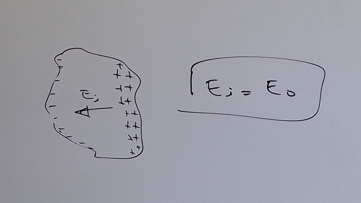 Ei
Ei = E0